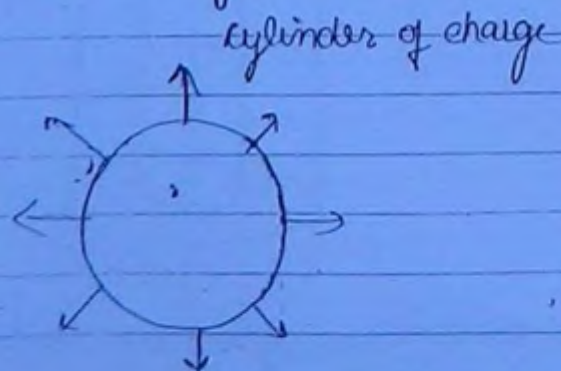 cylinder of charge